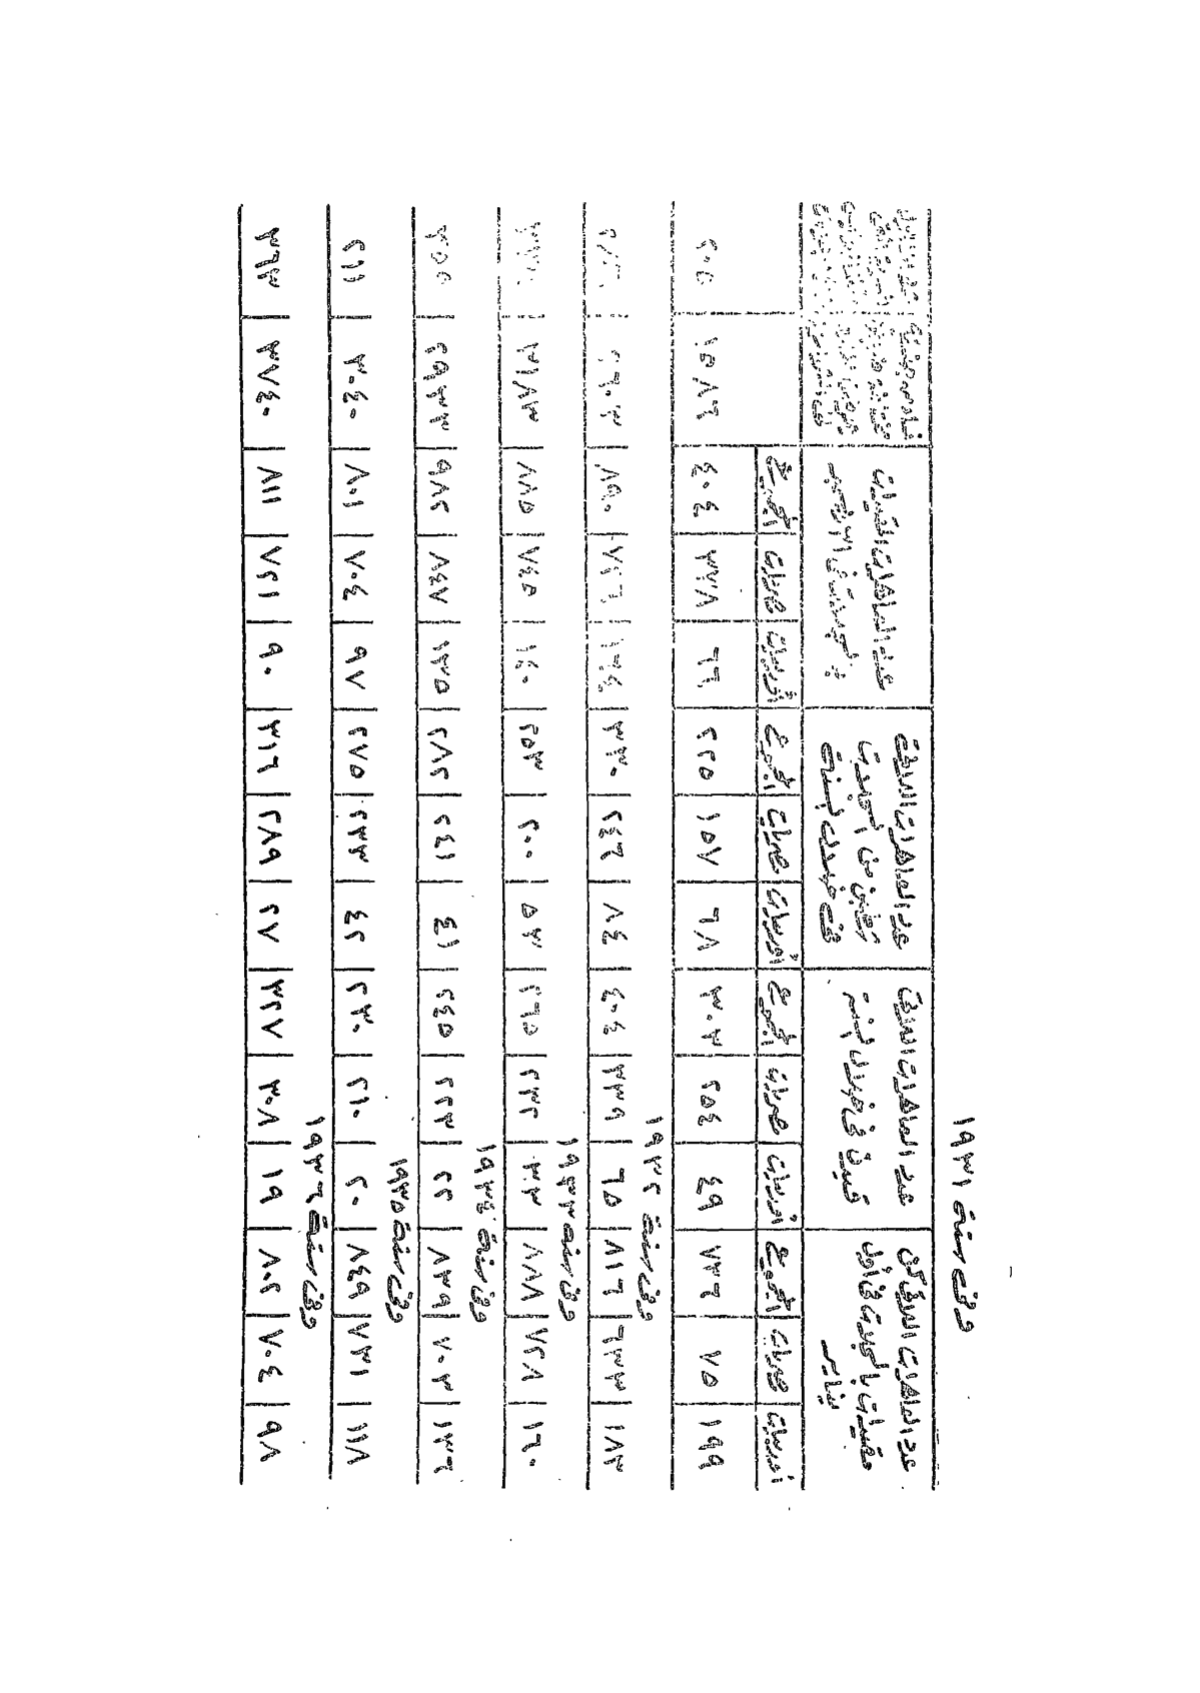 وفى سنة ١٩٣١
عدد العاهرات اللاتى كن
مقيدات بالسجلات فى أول
يناير
عدد العاهرات اللاتى
قيدن فى خلال السنة
عدد العاهرات اللاتى
رفعن من السجلات
فى خلال السنة
عدد العاهرات المقيدات
بالسجلات فى ٣١ ديسمبر
أوربيات مصريات المجموع أوربيات مصريات المجموع أوربيات مصريات المجموع أوربيات مصريات المجموع
١٩٩ ٧٥ ٧٣٦ ٤٩ ٢٥٤ ٣٠٣ ٦٨ ١٥٧ ٢٢٥ ٦٦ ٣٣٨ ٤٠٤ ١٥٨٦ ٢٠٥
وفى سنة ١٩٣٢
١٨٣ ٦٣٣ ٨١٦ ٦٥ ٣٣٩ ٤٠٤ ٨٤ ٢٤٦ ٣٣٠ ١٦٤ ٧٢٦ ٨٩٠ ٢٦٠٣
وفى سنة ١٩٣٣
١٦٠ ٧٢٨ ٨٨٨ ٣٣ ٢٣٢ ٢٦٥ ٥٣ ٢٠٠ ٢٥٣ ١٤٠ ٧٤٥ ٨٨٥ ٣١٨٣
وفى سنة ١٩٣٤
١٣٦ ٧٠٣ ٨٣٩ ٢٢ ٢٢٣ ٢٤٥ ٤١ ٢٤١ ٢٨٢ ١٣٥ ٨٤٧ ٩٨٢ ٢٩٣٣ ٣٥٥
وفى سنة ١٩٣٥
١١٨ ٧٣١ ٨٤٩ ٢٠ ٢١٠ ٢٣٠ ٤٢ ٢٣٣ ٢٧٥ ٩٧ ٧٠٤ ٨٠١ ٣٠٤٠ ٢١١
وفى سنة ١٩٣٦
٩٨ ٧٠٤ ٨٠٢ ١٩ ٣٠٨ ٣٢٧ ٢٧ ٢٨٩ ٣١٦ ٩٠ ٧٢١ ٨١١ ٣٧٤٠ ٣٦٣